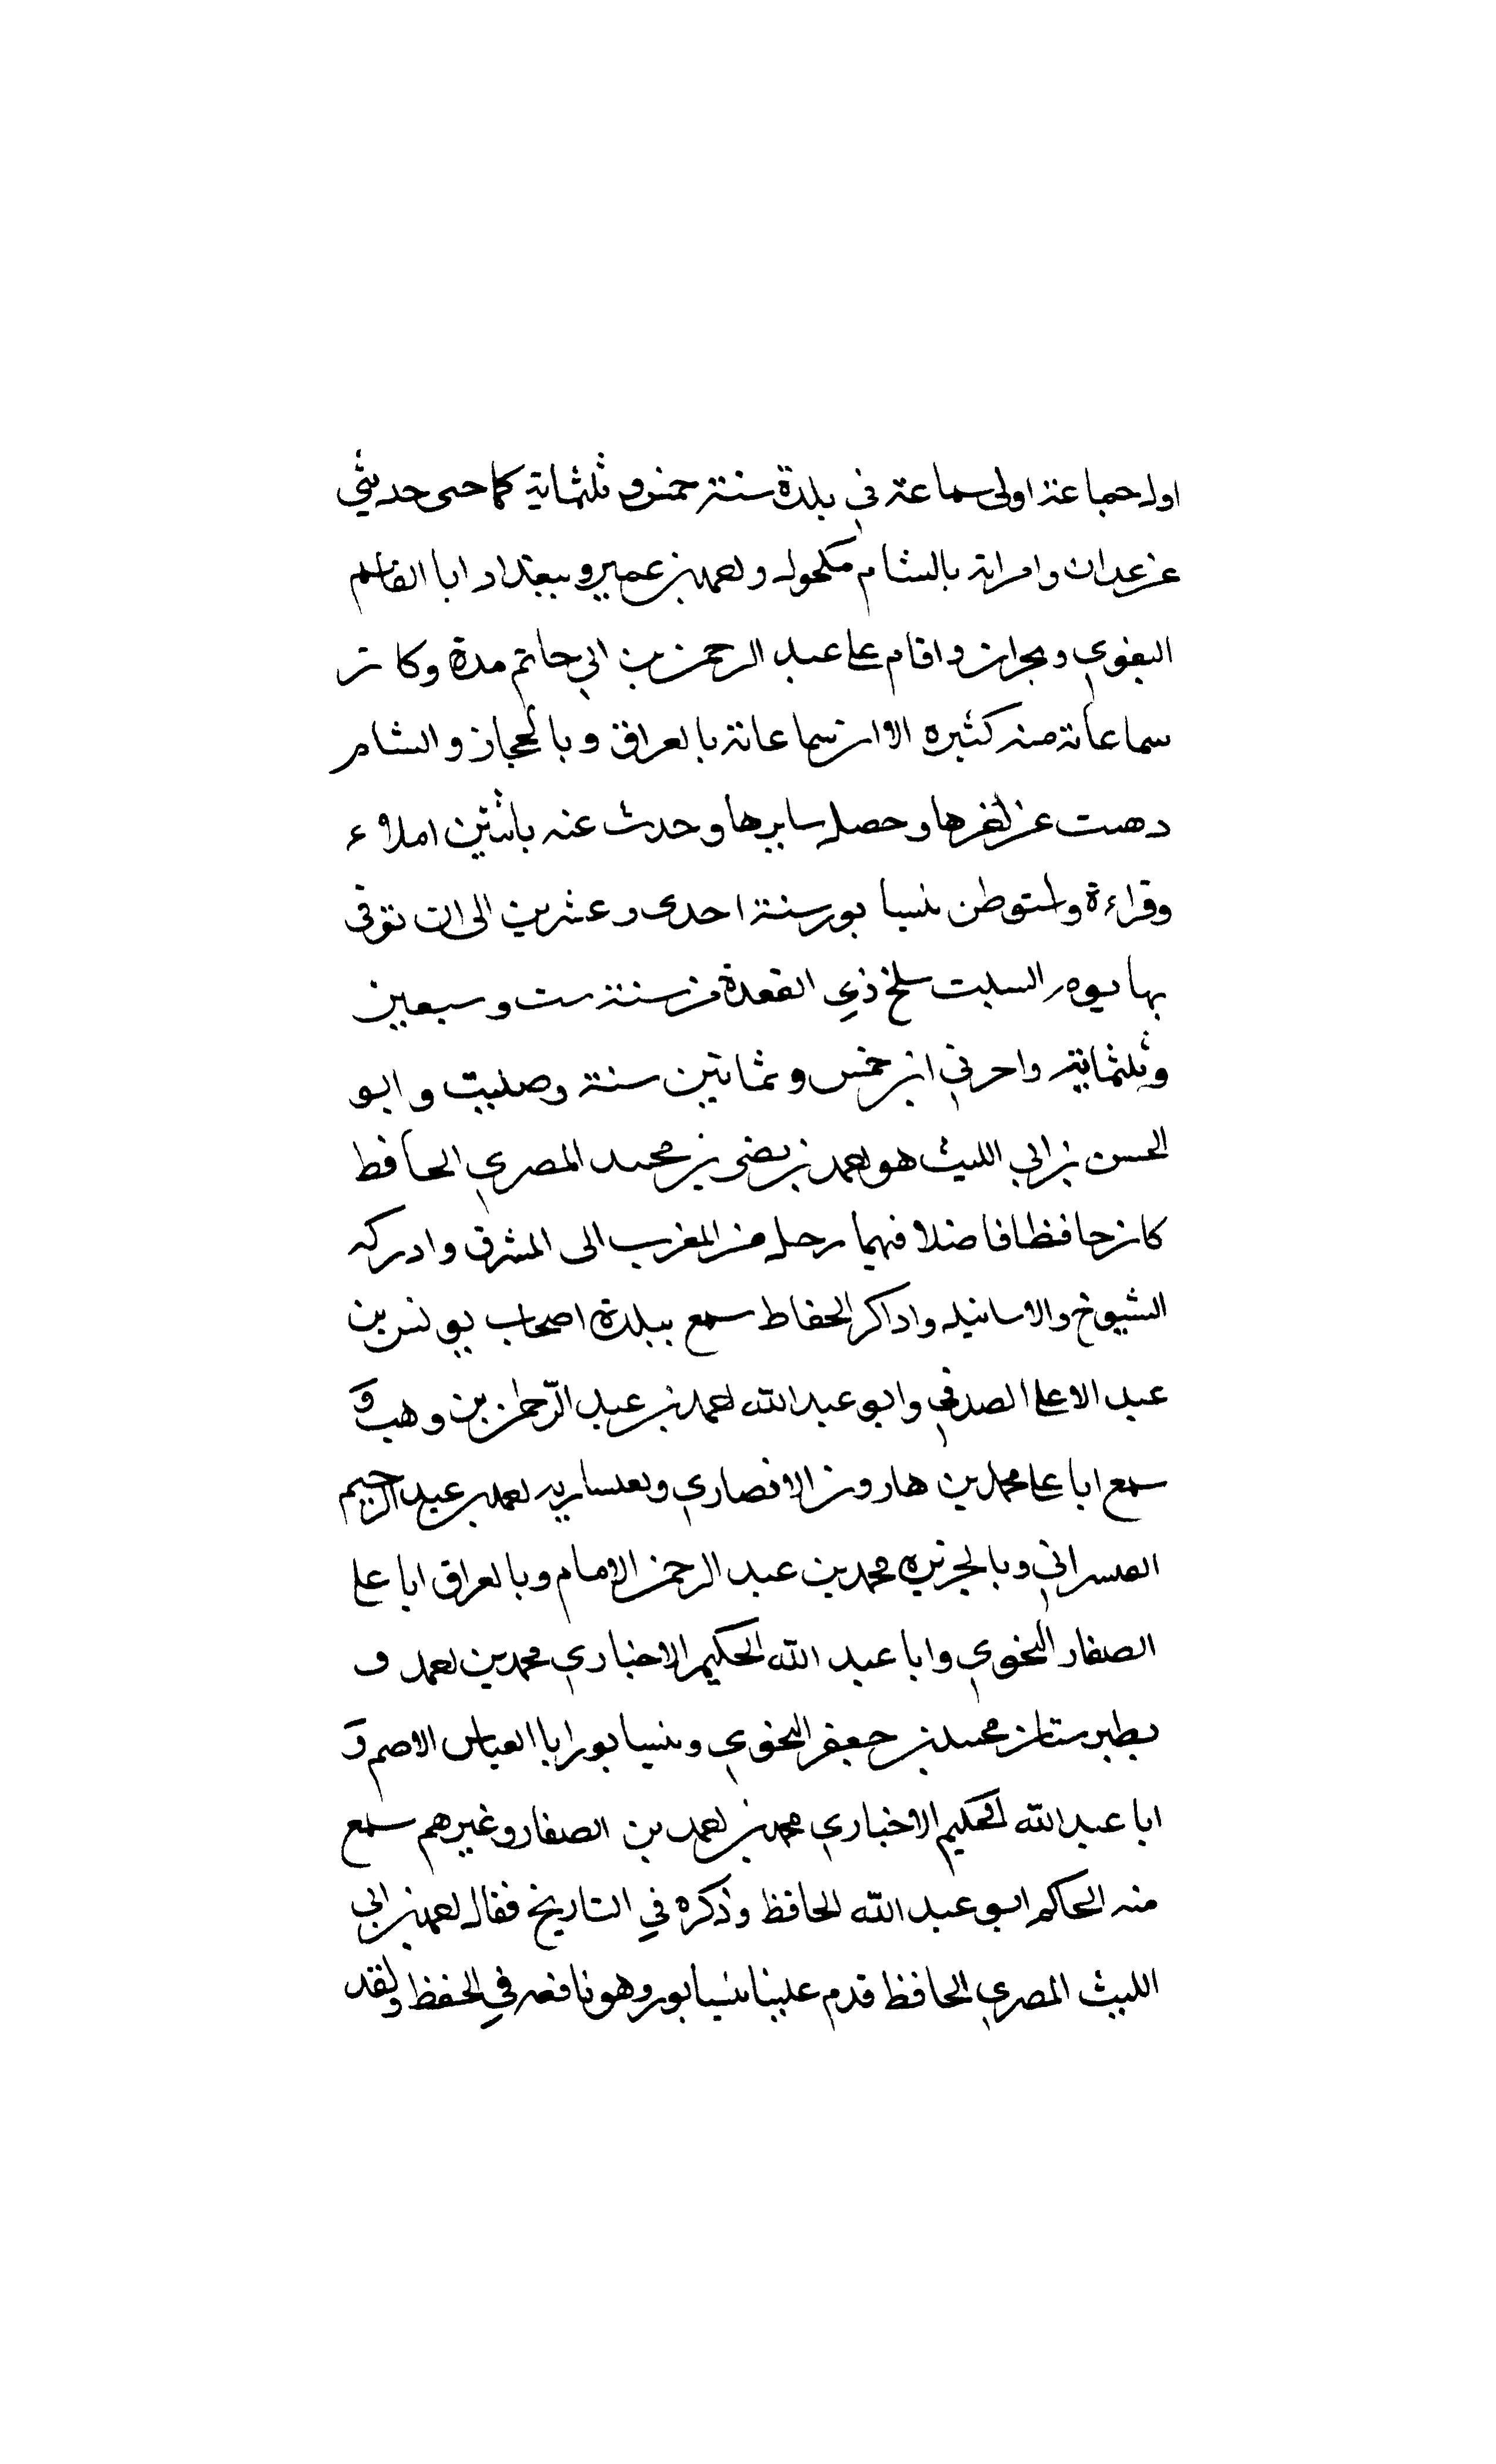 اول جماعة اولى سماعة في بلدة سنة خمس و ثلثماية كما حى حديثي
عن عبدان وامراة بالشام مكحول واحمد بن عمير و ببغداد ابا القاسم
البغوي وبحران واقام على عبد الرحمن بن ابي حاتم مدة وكانت
سماعاته منه كثيره الا ان سماعاتة بالعراق وبالحجاز والشام
دهست عن اخرها وحصل سايرها وحدث عنه باثنين املاء
وقراءة واستوطن نيسابور سنة احدى وعشرين الى ان توفى
بها يوم السبت سلخ ذي القعدة من سنة ست وسبعين
وثلثماية واخبرني انه خمس وثمانين سنة وصليت وابو
الحسن بن ابي الليث هو احمد بن نصر بن محمد المصري الحافظ
كان حافظا فاضلا فهيما رحل من المغرب الى المشرق وادركه
الشيوخ والاسانيد واذاكر الحفاظ سمع ببلدة اصحاب يونس بن
عبد الاعلى الصدفي وابو عبد الله احمد بن عبد الرحمن بن وهب و
سمع ابا على محمد بن هارون الانصاري وبقيسارية احمد بن عبد الرحيم
القيسراني وبالجزيره محمد بن عبد الرحمن الامام وبالعراق ابا على
الصفار النحوي وابا عبد الله الحكيم الاخباري محمد بن احمد و
بطبرستان محمد بن جعفر النحوي وبنيسابور ابا العباس الاصم و
ابا عبد الله الحكيم الاخباري محمد بن احمد بن الصفار وغيرهم سمع
منه الحاكم ابو عبد الله الحافظ وذكره في التاريخ فقال احمد بن ابي
الليث المصري الحافظ قدم علينا نيسابور وهو نافعه في الحفظ ولقد